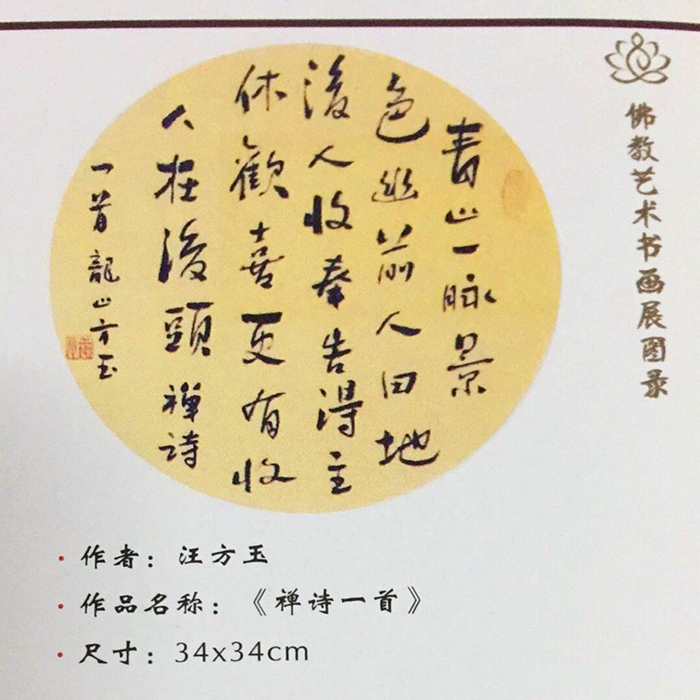 青山一脉景
色幽前人田地
後人收奉告得主
休歡喜更有收
人在後頭禅诗
一首龍山方玉
佛教艺术书画展图录
· 作者：汪方玉
· 作品名称：《禅诗一首》
· 尺寸：34x34cm